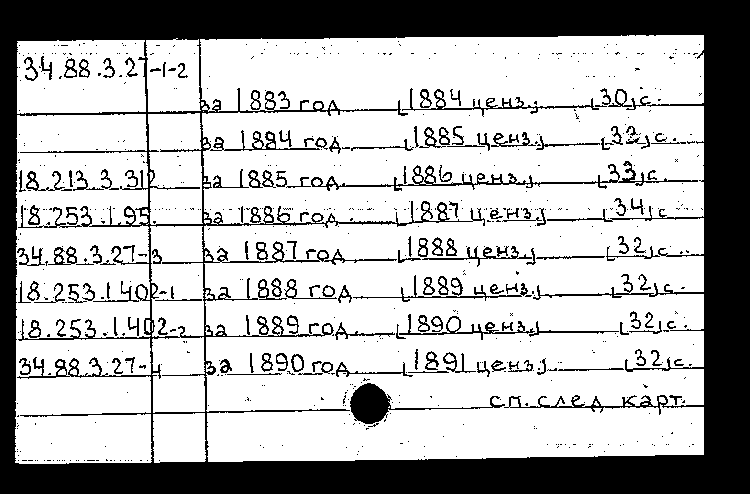 34.88.3.27-1-2
за 1883 год [1884 ценз.] [30]с.
за 1884 год. [1885 ценз.] [32]с.
18.213.3.312 за 1885 год. [1886 ценз.] [33]с.
18.253.1.95. за 1886 год. [1887 ценз.] [34]с.
34.88.3.27-3 за 1887 год [1888 ценз.] [32]с.
18.253.1.402-1 за 1888 год. [1889 ценз.] [32]с.
18.253.1.402-2 за 1889 год. [1890 ценз.] [32]с.
34.88.3.27-4 за 1890 год. [1891 ценз.] [32]с.
сп. след карт.